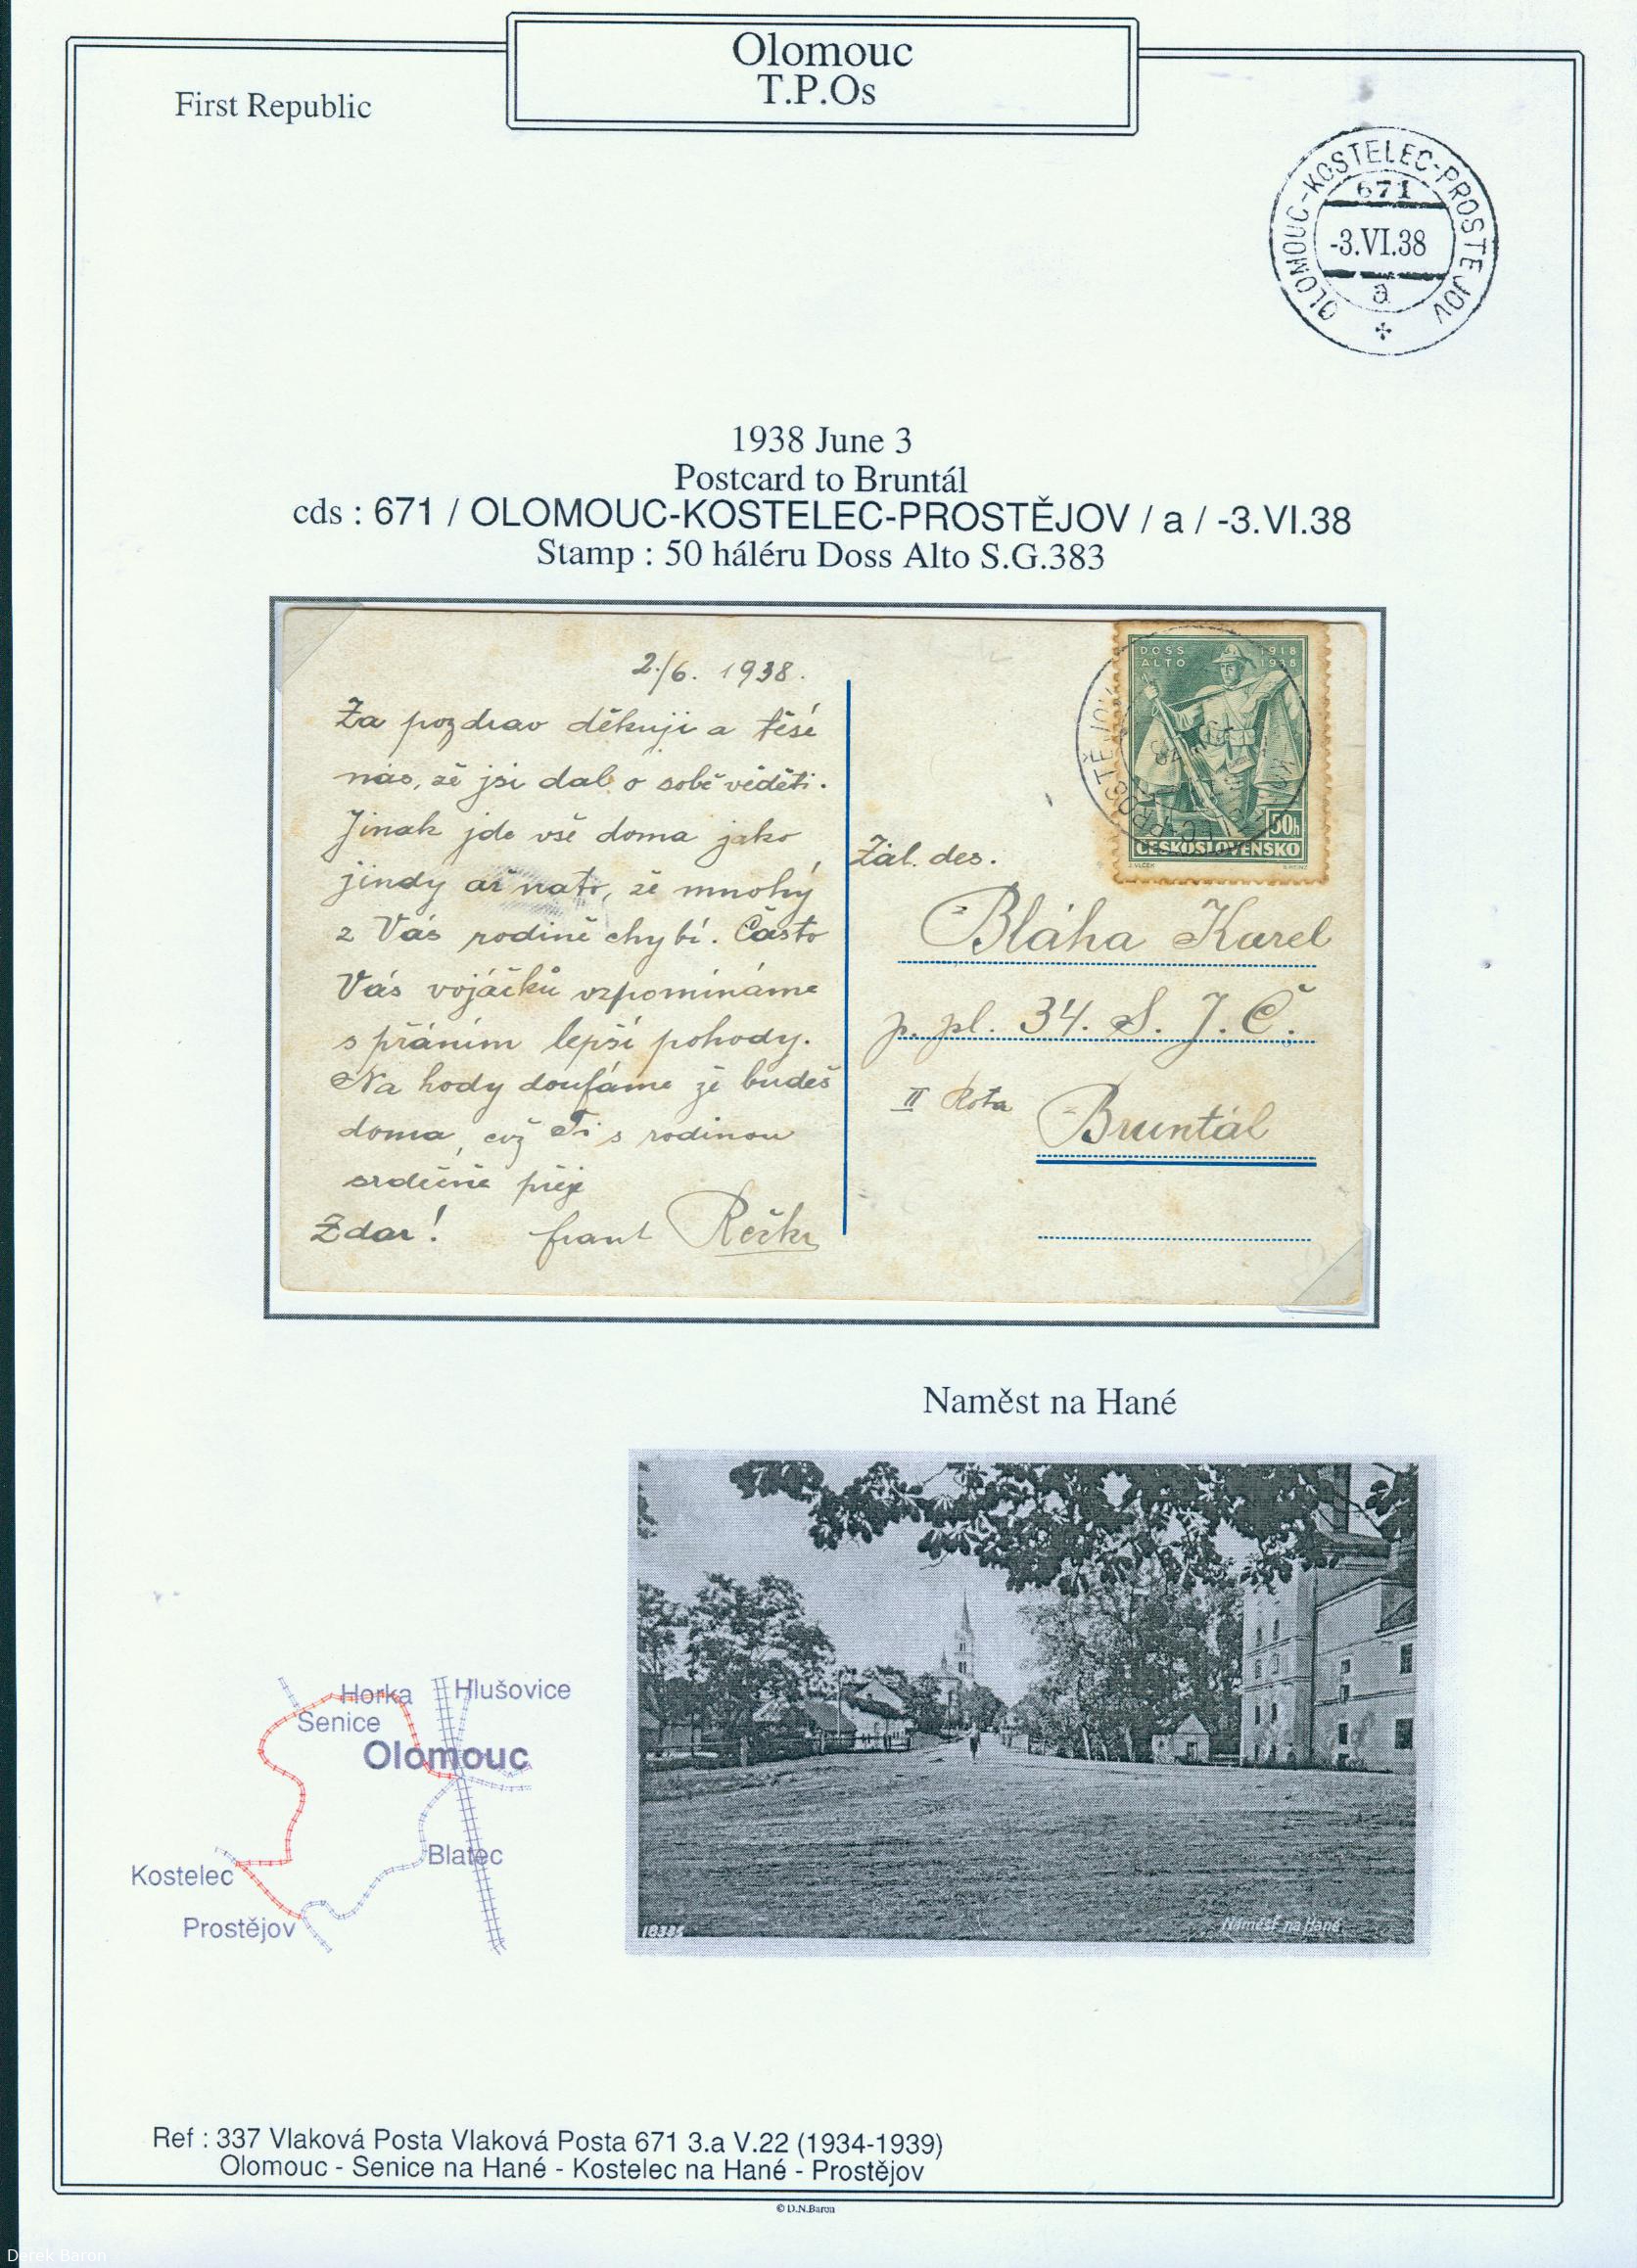 Olomouc
T.P.Os
First Republic
OLOMOUC-KOSTELEC-PROSTEJOV
671
-3.VI.38
a
1938 June 3
Postcard to Bruntál
cds : 671 / OLOMOUC-KOSTELEC-PROSTĚJOV / a / -3.VI.38
Stamp : 50 háléru Doss Alto S.G.383
2./6. 1938.
Za pozdrav děkuji a těší
nás, že jsi dal o sobě věděti.
Jinak jde vše doma jako
jindy až na to, že mnohý
z Vás rodině chybí. Často
Vás vojáčků vzpomínáme
s přáním lepší pohody.
Na hody doufáme že budeš
doma, což Ti s rodinou
srdečně přeje
Zdar! frant
DOSS ALTO 1918 1938
50h
ČESKOSLOVENSKO
Žál. des.
Bláha Karel
p. pl. 34. S. J. Č.
II Rota
Bruntál
Naměst na Hané
18385
Náměšť na Hané
Horka
Hlušovice
Senice
Olomouc
Blatec
Kostelec
Prostějov
Ref : 337 Vlaková Posta Vlaková Posta 671 3.a V.22 (1934-1939)
Olomouc - Senice na Hané - Kostelec na Hané - Prostějov
© D.N.Baron
Derek Baron